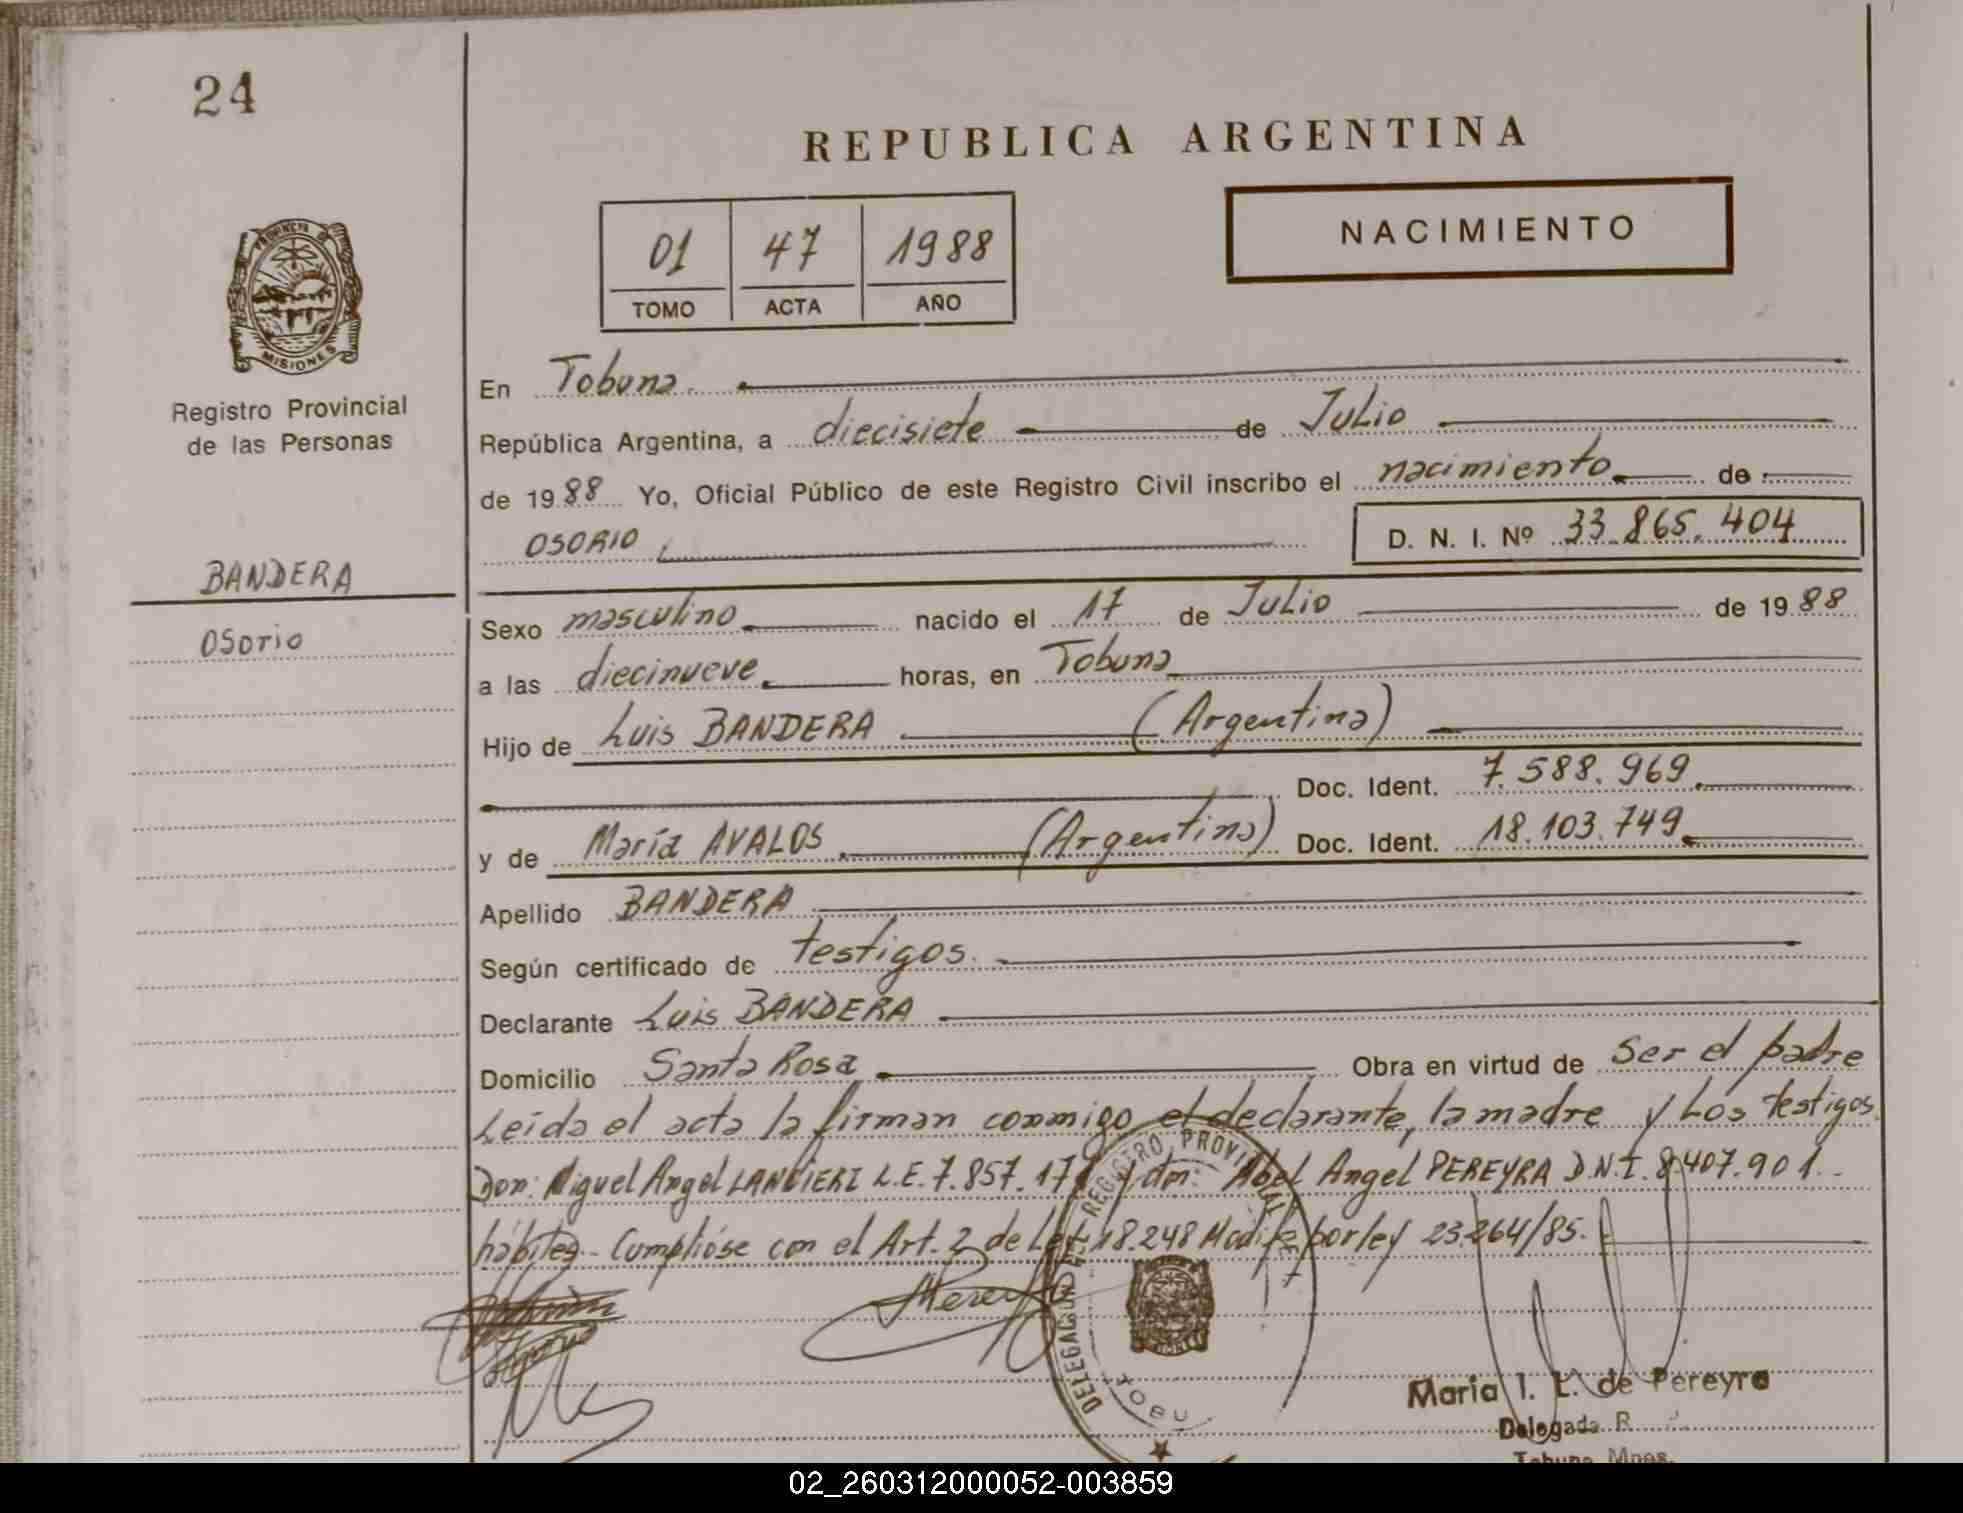 24
REPUBLICA ARGENTINA
PROVINCIA DE
MISIONES
Registro Provincial
de las Personas
01 47 1988
TOMO ACTA AÑO
NACIMIENTO
En Tobuna.
República Argentina, a diecisiete de Julio
de 1988 Yo, Oficial Público de este Registro Civil inscribo el nacimiento de
OSORIO
D. N. I. Nº 33.865.404
BANDERA
Osorio
Sexo masculino nacido el 17 de Julio de 1988
a las diecinueve. horas, en Tobuna
Hijo de Luis BANDERA (Argentina)
Doc. Ident. 7.588.969.
y de María AVALOS. (Argentina) Doc. Ident. 18.103.749.
Apellido BANDERA
Según certificado de testigos.
Declarante Luis BANDERA
Domicilio Santa Rosa Obra en virtud de Ser el padre
Leída el acta la firman conmigo el declarante, la madre y Los testigos.
Don: Miguel Angel L.E. 7.857.17 y don: Abel Angel PEREYRA D.N.I. 8.407.901.-
hábiles.- Cumplióse con el Art. 2 de Ley 18.248 Modif. por ley 23.264/85.-
DELEGACION DEL REGISTRO PROVINCIAL DE
TOBU
Maria I. L. de Pereyra
Delegada R.
Tobuna Mnes.
02_260312000052-003859